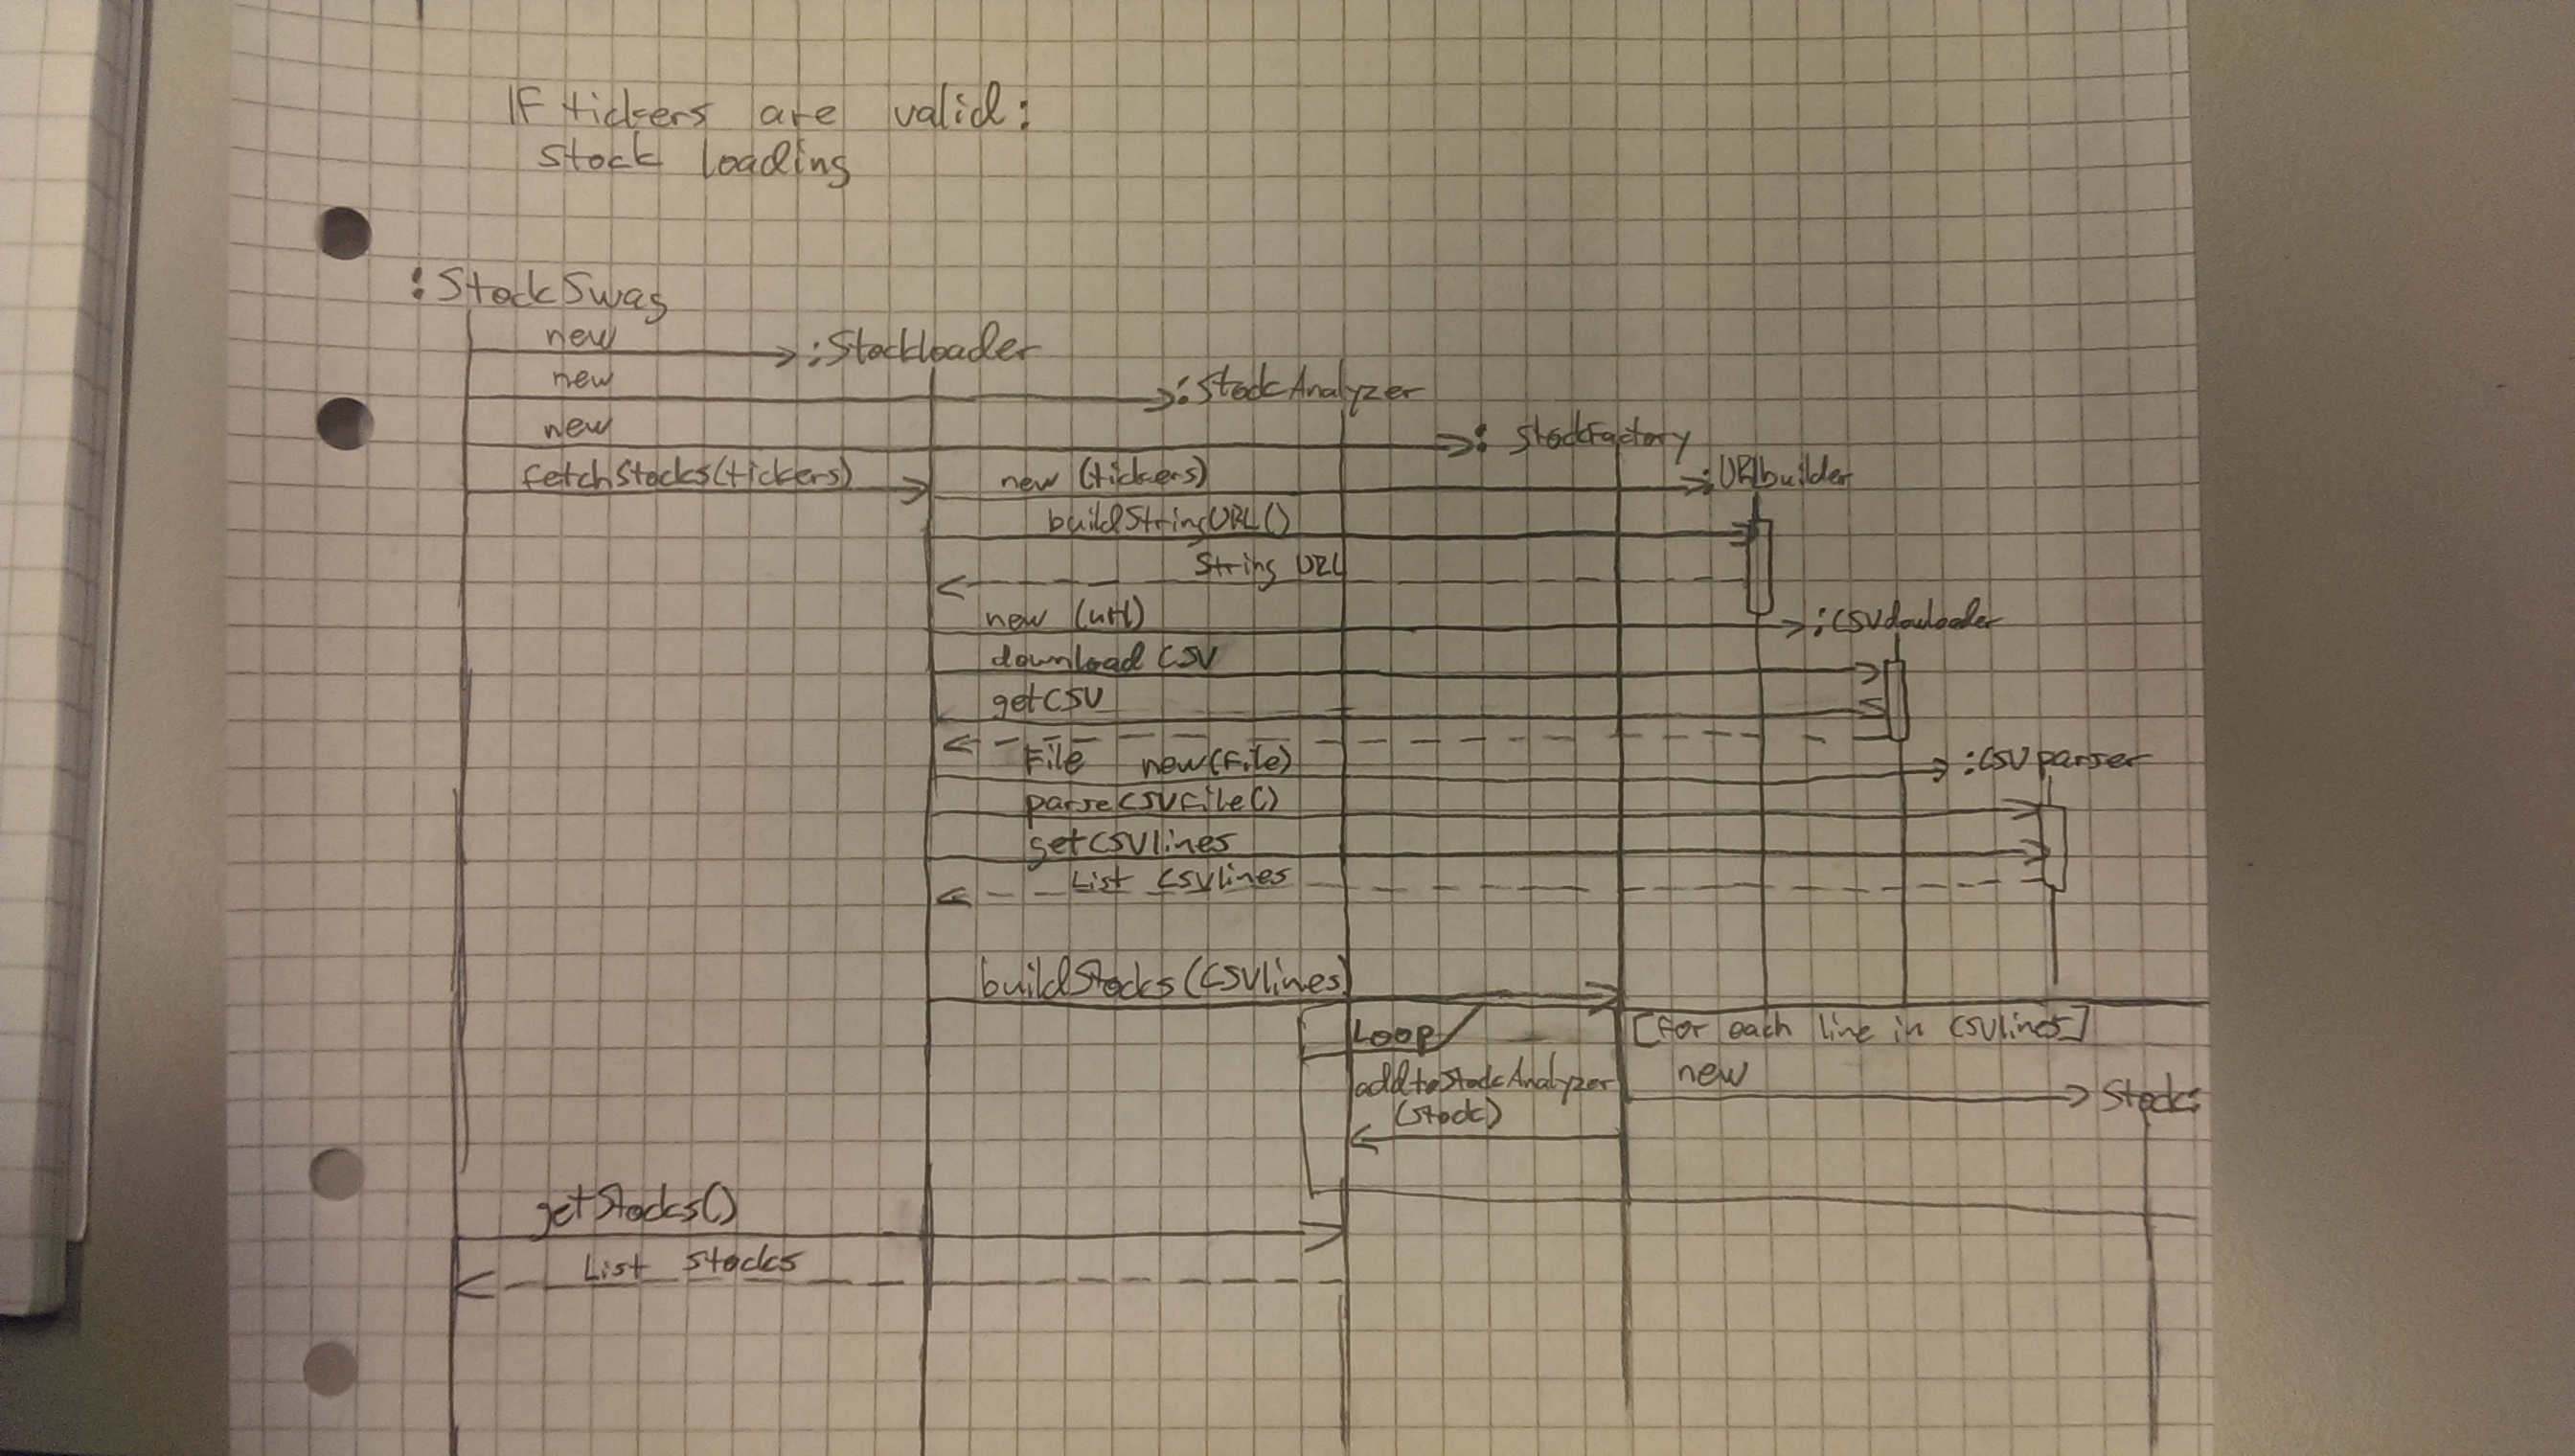 IF tickers are valid:
Stock loading
:StockSwag
new
:Stockloader
new
:StockAnalyzer
new
: StockFactory
fetchStocks(tickers)
new (tickers)
:URLbuilder
buildStringURL()
String URL
new (url)
:CSVdowloader
download CSV
getCSV
File new(File)
:CSVparser
parseCSVFile()
getCSVlines
List CSVlines
buildStocks(CSVlines)
Loop
[for each line in CSVlines]
new
Stock:
addtoStockAnalyzer
(stock)
getStocks()
List stocks